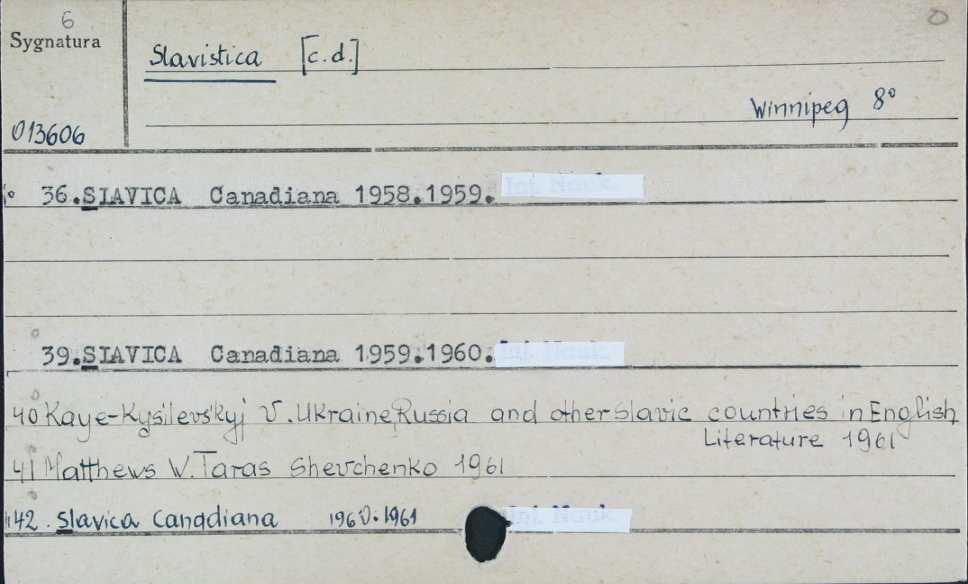 6
Sygnatura
Slavistica [c.d.]
Winnipeg 8°
013606
36.SLAVICA Canadiana 1958.1959. Int. Nauk.
39.SLAVICA Canadiana 1959.1960. Int. Nauk.
40 Kaye-Kysilevs'kyj V. Ukraine, Russia and other slavic countries in English
Literature 1961
41 Matthews W. Taras Shevchenko 1961
42. Slavica Canadiana 1960.1961 Int. Nauk.